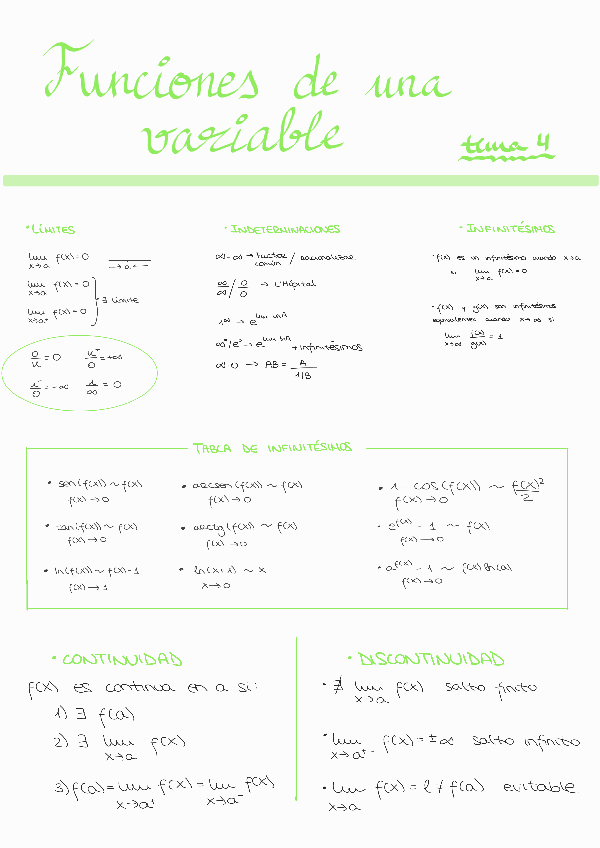 Funciones de una
variable
tema 4
· LÍMITES
lim f(x) = 0
x→a
lim f(x) = 0
x→a⁻
lim f(x) = 0
x→a⁺
∃ límite
0/K = 0 K⁺/0 = +∞
K⁻/0 = -∞ 1/∞ = 0
· INDETERMINACIONES
∞-∞ → factor común / racionalizar
∞/∞ / 0/0 → L'Hôpital
+ infinitésimos
∞·0 → AB = A/1/B
· INFINITÉSIMOS
· f(x) es un infinitésimo cuando x→a
si lim f(x) = 0
x→a
· f(x) y g(x) son infinitésimos
equivalentes cuando x→∞ si
lim f(x)/g(x) = 1
x→∞
TABLA DE INFINITÉSIMOS
• sen(f(x)) ~ f(x) • arcsen(f(x)) ~ f(x) • 1 cos(f(x)) ~ f(x)²/2
f(x)→0 f(x)→0 f(x)→0
• tan(f(x)) ~ f(x) • arctg(f(x)) ~ f(x) • e^f(x) - 1 ~ f(x)
f(x)→0 f(x)→0 f(x)→0
• ln(f(x)) ~ f(x)-1 • ln(x+1) ~ x • a^f(x) - 1 ~ f(x) ln(a)
f(x)→1 x→0 f(x)→0
• CONTINUIDAD
f(x) es continua en a si:
1) ∃ f(a)
2) ∃ lim f(x)
x→a
3) f(a) = lim f(x) = lim f(x)
x→a⁺ x→a⁻
• DISCONTINUIDAD
• ∄ lim f(x) salto finito
x→a
• lim f(x) = ±∞ salto infinito
x→a⁺⁻
• lim f(x) = l ≠ f(a) evitable
x→a